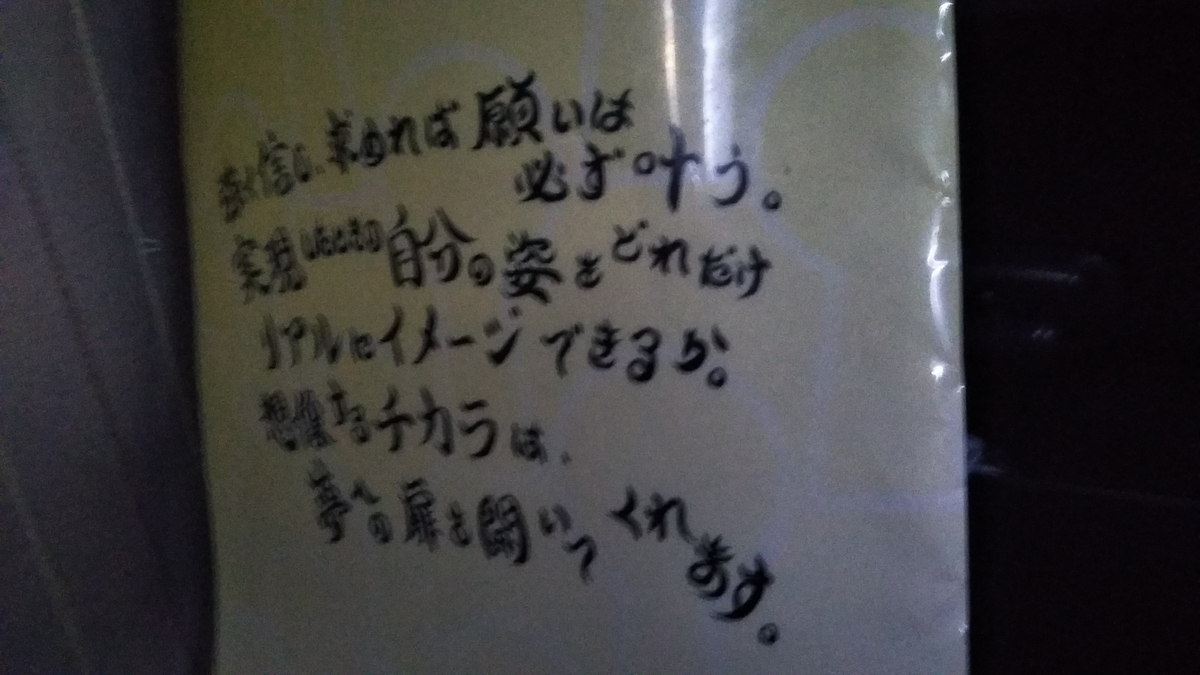 強く信じ、求めれば願いは
必ず叶う。
実現したときの自分の姿をどれだけ
リアルにイメージできるか。
想像するチカラは、
夢への扉を開いてくれます。